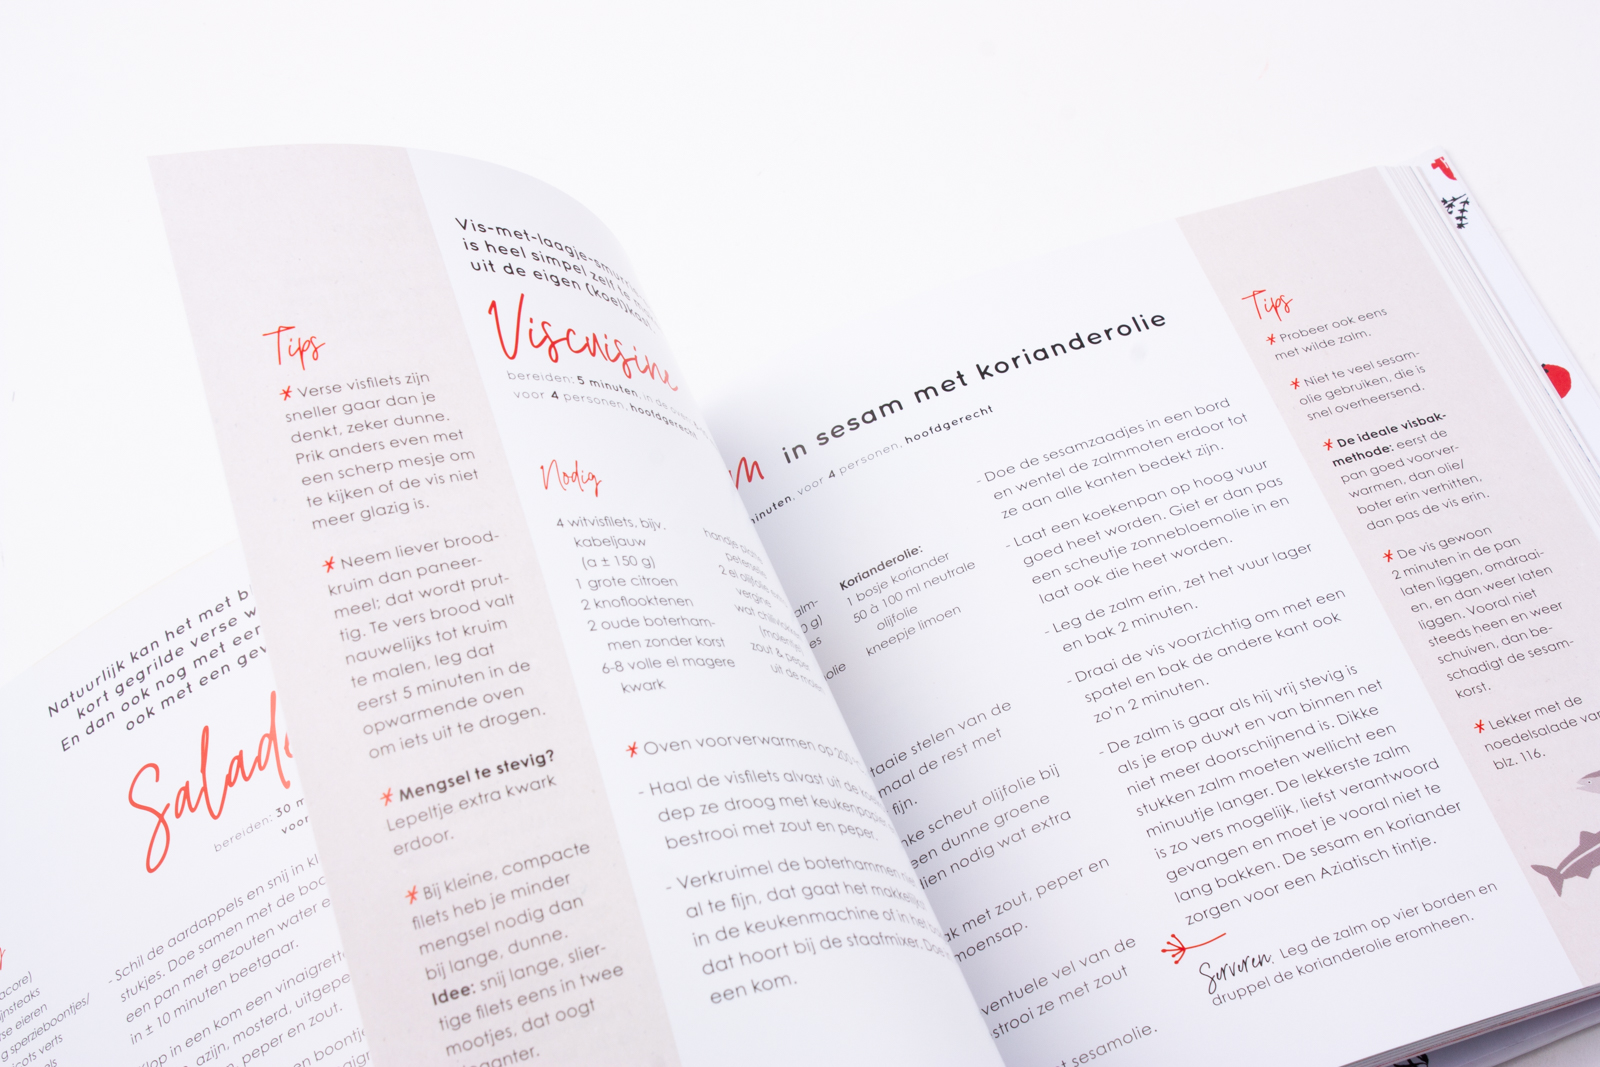 Natuurlijk kan het met b
kort gegrilde verse w
En dan ook nog met eer
ook met een gev
Salad
bereiden: 30 m
voor
acore)
jnsteaks
se eieren
g sperzieboontjes/
icots verts
els
- Schil de aardappels en snij in kl
stukjes. Doe samen met de boc
een pan met gezouten water e
in ± 10 minuten beetgaar.
lop in een kom een vinaigrett
azijn, mosterd, uitgepe
peper en zout.
een boontj
Tips
* Verse visfilets zijn
sneller gaar dan je
denkt, zeker dunne.
Prik anders even met
een scherp mesje om
te kijken of de vis niet
meer glazig is.
* Neem liever brood-
kruim dan paneer-
meel; dat wordt prut-
tig. Te vers brood valt
nauwelijks tot kruim
te malen, leg dat
eerst 5 minuten in de
opwarmende oven
om iets uit te drogen.
* Mengsel te stevig?
Lepeltje extra kwark
erdoor.
* Bij kleine, compacte
filets heb je minder
mengsel nodig dan
bij lange, dunne.
Idee: snij lange, slier-
tige filets eens in twee
mootjes, dat oogt
eleganter.
Vis-met-laagje-smul
is heel simpel zelf te m
uit de eigen (koel)kas
Viscuisine
bereiden: 5 minuten, in de oven
voor 4 personen, hoofdgerecht
Nodig
4 witvisfilets, bijv.
kabeljauw
(a ± 150 g)
1 grote citroen
2 knoflooktenen
2 oude boterham-
men zonder korst
6-8 volle el magere
kwark
handje
peterselie
2 el olijfolie
vergine
wat chilivlokken
zout & peper
uit de molen
* Oven voorverwarmen op 200
- Haal de visfilets alvast uit de ko
dep ze droog met keukenpapier
bestrooi met zout en peper.
- Verkruimel de boterhammen
al te fijn, dat gaat het makkelijk
in de keukenmachine of in het b
dat hoort bij de staafmixer. Doe
een kom.
m in sesam met korianderolie
inuten, voor 4 personen, hoofdgerecht
alm-
0 g)
es
olie
Korianderolie:
1 bosje koriander
50 à 100 ml neutrale
olijfolie
kneepje limoen
taaie stelen van de
maal de rest met
fijn.
nke scheut olijfolie bij
een dunne groene
lien nodig wat extra
ak met zout, peper en
moensap.
ventuele vel van de
strooi ze met zout
t sesamolie.
- Doe de sesamzaadjes in een bord
en wentel de zalmmoten erdoor tot
ze aan alle kanten bedekt zijn.
- Laat een koekenpan op hoog vuur
goed heet worden. Giet er dan pas
een scheutje zonnebloemolie in en
laat ook die heet worden.
- Leg de zalm erin, zet het vuur lager
en bak 2 minuten.
- Draai de vis voorzichtig om met een
spatel en bak de andere kant ook
zo'n 2 minuten.
- De zalm is gaar als hij vrij stevig is
als je erop duwt en van binnen net
niet meer doorschijnend is. Dikke
stukken zalm moeten wellicht een
minuutje langer. De lekkerste zalm
is zo vers mogelijk, liefst verantwoord
gevangen en moet je vooral niet te
lang bakken. De sesam en koriander
zorgen voor een Aziatisch tintje.
Serveren. Leg de zalm op vier borden en
druppel de korianderolie eromheen.
Tips
* Probeer ook eens
met wilde zalm.
* Niet te veel sesam-
olie gebruiken, die is
snel overheersend.
* De ideale visbak-
methode: eerst de
pan goed voorver-
warmen, dan olie/
boter erin verhitten,
dan pas de vis erin.
* De vis gewoon
2 minuten in de pan
laten liggen, omdraai-
en, en dan weer laten
liggen. Vooral niet
steeds heen en weer
schuiven, dan be-
schadigt de sesam-
korst.
* Lekker met de
noedelsalade van
blz. 116.